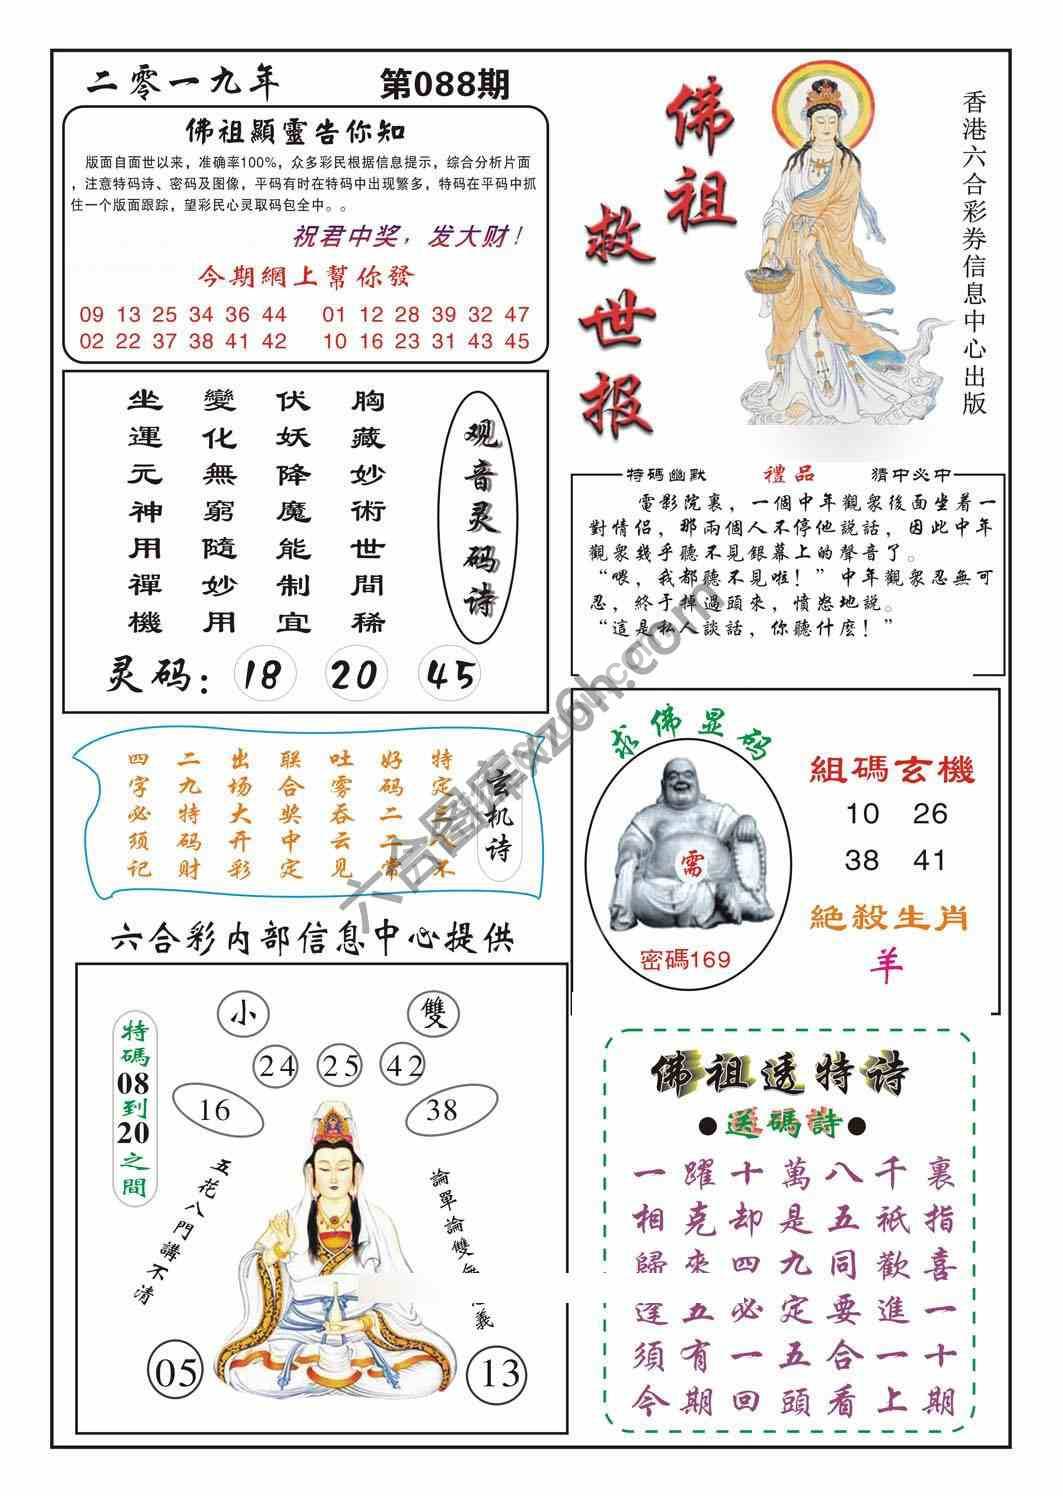 二零一九年
第088期
佛祖顯靈告你知
版面自面世以来，准确率100%，众多彩民根据信息提示，综合分析片面
，注意特码诗、密码及图像，平码有时在特码中出现繁多，特码在平码中抓
住一个版面跟踪，望彩民心灵取码包全中。。
祝君中奖，发大财！
今期網上幫你發
09 13 25 34 36 44 01 12 28 39 32 47
02 22 37 38 41 42 10 16 23 31 43 45
佛祖救世报
香港六合彩券信息中心出版
观音灵码诗
胸藏妙術世間稀
伏妖降魔能制宜
變化無窮隨妙用
坐運元神用禪機
灵码：18 20 45
特碼幽默 禮品 猜中必中
電影院裏，一個中年觀衆後面坐着一
對情侣，那兩個人不停他説話，因此中年
觀衆幾乎聽不見銀幕上的聲音了。
“喂，我都聽不見啦！”中年觀衆忍無可
忍，終于掉過頭來，憤怒地説。
“這是私人談話，你聽什麽！”
玄机诗
特定三不
好码二二常
吐雾吞云见
联合奖中定
出场大开彩
二九特码财
四字必须记
求佛显码
需
密碼169
組碼玄機
10 26
38 41
絶殺生肖
羊
六合彩内部信息中心提供
小 雙
24 25 42
16 38
特碼08到20之間
五花八門講不清
論單論雙無意義
05 13
佛祖透特诗
●送碼詩●
一躍十萬八千裏
相克却是五祇指
歸來四九同歡喜
逢五必定要進一
須有一五合一十
今期回頭看上期
六合图库xz6h.com